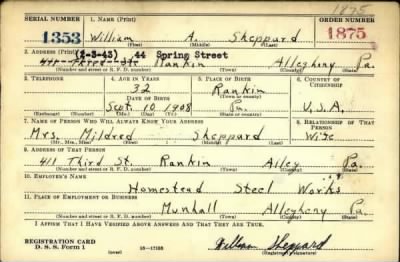 1875
SERIAL NUMBER 1. NAME (Print) ORDER NUMBER
1353 William A. Sheppard 1875
(First) (Middle) (Last)
2. ADDRESS (Print) (2-3-43) 44 Spring Street
411 Third St. Rankin Allegheny Pa.
(Number and street or R. F. D. number) (Town) (County) (State)
3. TELEPHONE 4. AGE IN YEARS 5. PLACE OF BIRTH 6. COUNTRY OF CITIZENSHIP
32 Rankin
DATE OF BIRTH (Town or county)
Sept. 10 1908 Pa. U.S.A.
(Exchange) (Number) (Mo.) (Day) (Yr.) (State or country)
7. NAME OF PERSON WHO WILL ALWAYS KNOW YOUR ADDRESS 8. RELATIONSHIP OF THAT PERSON
Mrs. Mildred Sheppard Wife
(Mr., Mrs., Miss) (First) (Middle) (Last)
9. ADDRESS OF THAT PERSON
411 Third St. Rankin Alleg. Pa.
(Number and street or R. F. D. number) (Town) (County) (State)
10. EMPLOYER'S NAME
Homestead Steel Works
11. PLACE OF EMPLOYMENT OR BUSINESS
Munhall Allegheny Pa.
(Number and street or R. F. D. number) (Town) (County) (State)
I AFFIRM THAT I HAVE VERIFIED ABOVE ANSWERS AND THAT THEY ARE TRUE.
REGISTRATION CARD
D. S. S. Form 1 16—17105 William Sheppard
(Registrant's signature)